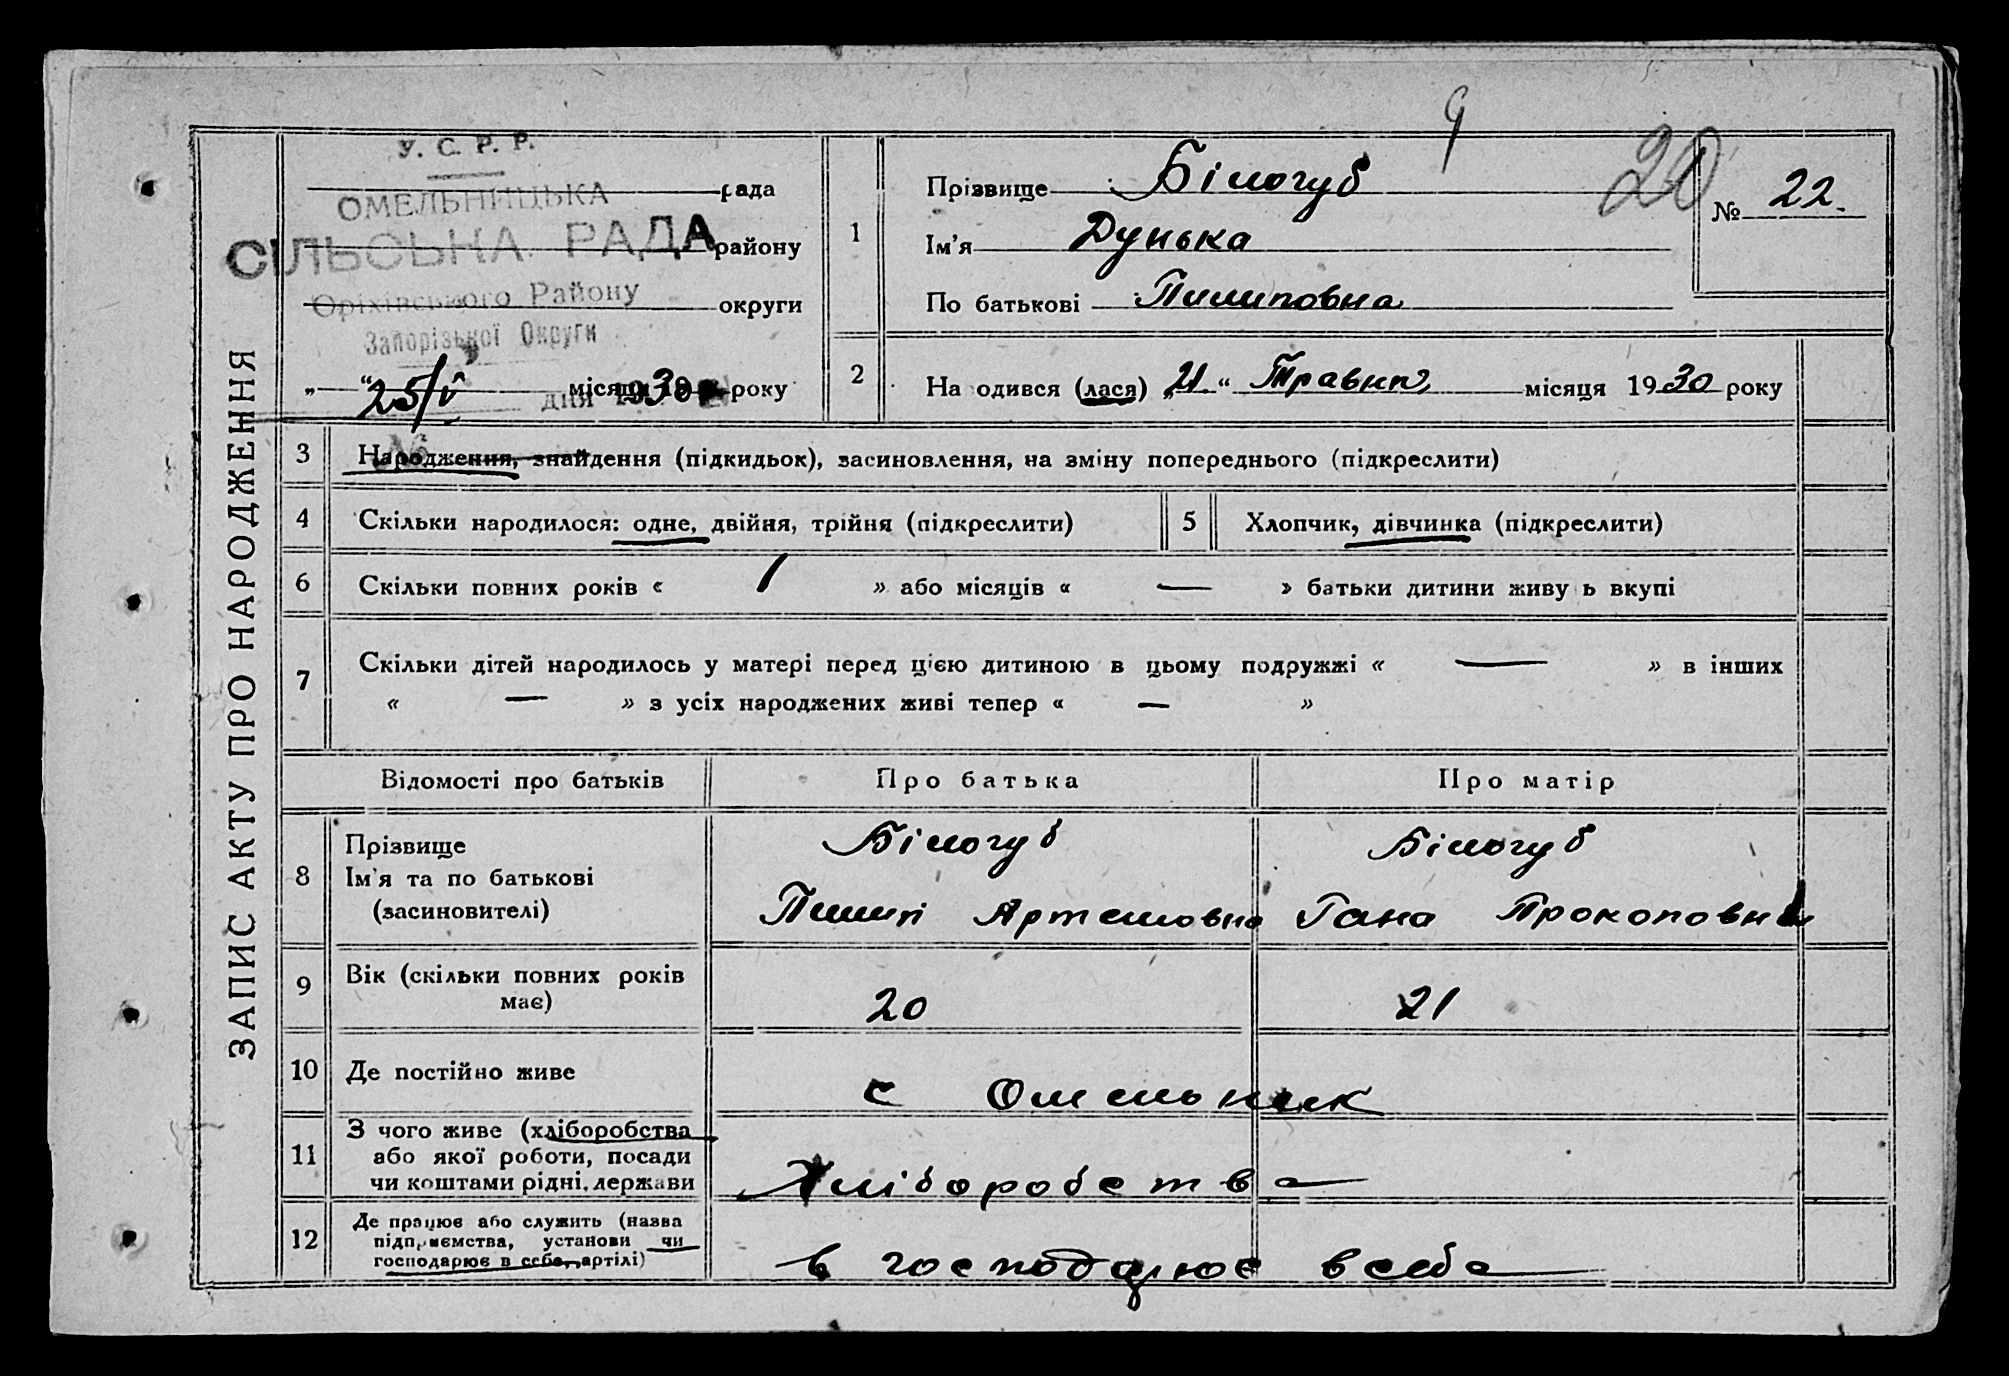 ЗАПИС АКТУ ПРО НАРОДЖЕННЯ
У. С. Р. Р.
ОМЕЛЬНИЦЬКА рада
СІЛЬСЬКА РАДА району
Оріхівського Району округи
Запорізької Округи
„ “ 25/V місяця 1930 року
дня
№
9
20
№ 22.
1
Прізвище Білогуб
Ім'я Дунька
По батькові Пилиповна
2
На одився (лася) „21“ Травня місяця 1930 року
3 Народження, знайдення (підкидьок), засиновлення, на зміну попереднього (підкреслити)
4 Скільки народилося: одне, двійня, трійня (підкреслити) 5 Хлопчик, дівчинка (підкреслити)
6 Скільки повних років « 1 » або місяців « — » батьки дитини живу ь вкупі
7 Скільки дітей народилось у матері перед цією дитиною в цьому подружжі « — » в інших
« — » з усіх народжених живі тепер « — »
Відомості про батьків Про батька Про матір
8 Прізвище Білогуб Білогуб
Ім'я та по батькові
(засиновителі) Пилип Артемовна Гана Прокоповна
9 Вік (скільки повних років
має) 20 21
10 Де постійно живе с Омельник
11 З чого живе (хліборобства
або якої роботи, посади
чи коштами рідні, держави Хліборобства
12 Де працює або служить (назва
підприємства, установи чи
господарює в себе, артілі) в господарює в себе